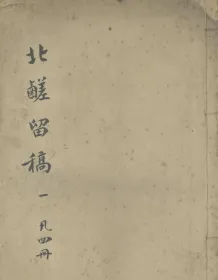 北鹾留稿 一 凡四冊